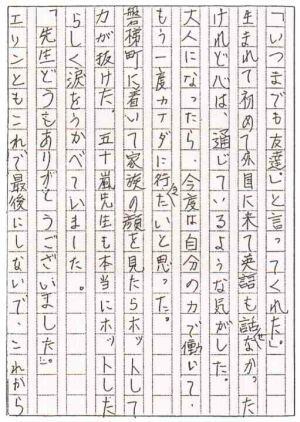 「いつまでも友達」と言ってくれた。
生まれて初めて外国に来て英語も話せなかった
けれど心は、通じているような気がした。
大人になったら、今度は自分の力で働いて、
もう一度カナダに行きたいと思った。
磐梯町に着いて家族の顔を見たらホッとして
力が抜けた。五十嵐先生も本当にホットしたら
らしく涙をうかべていました。
「先生どうもありがとうございました」。
エリンともこれで最後にしないで、これから